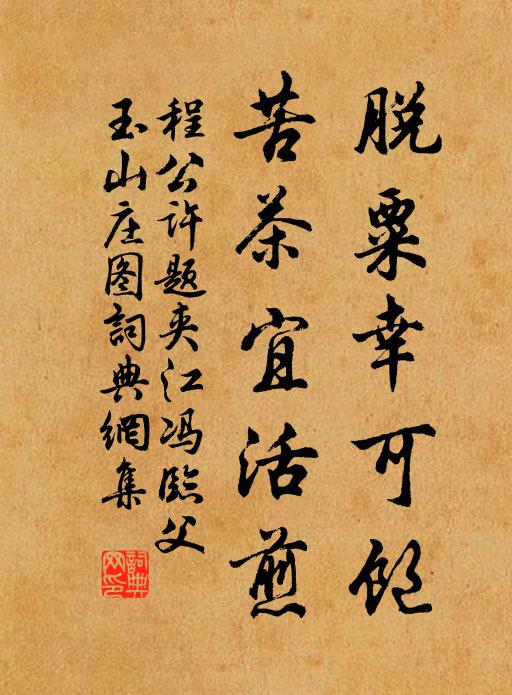 脱粟幸可飽
苦茶宜活煎
程公许题夹江冯臨父
玉山庄图詞典網集
詞典网印